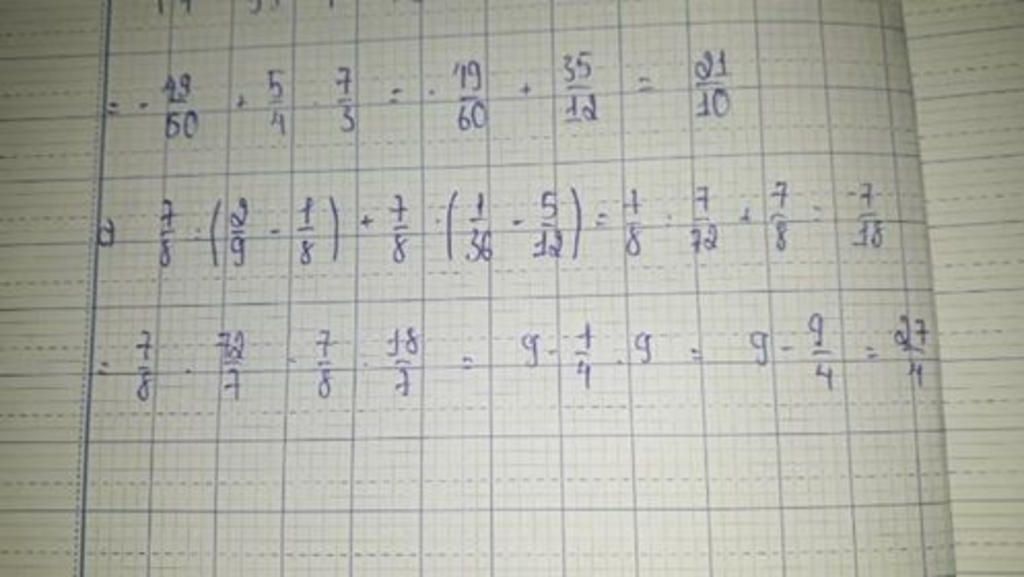 = - 49/60 + 5/4 . 7/3 = - 49/60 + 35/12 = 21/10
d) 7/8 : (2/9 - 1/8) + 7/8 : (1/36 - 5/12) = 7/8 : 7/72 + 7/8 : -7/18
= 7/8 . 72/7 - 7/8 . 18/7 = 9 - 1/4 . 9 = 9 - 9/4 = 27/4